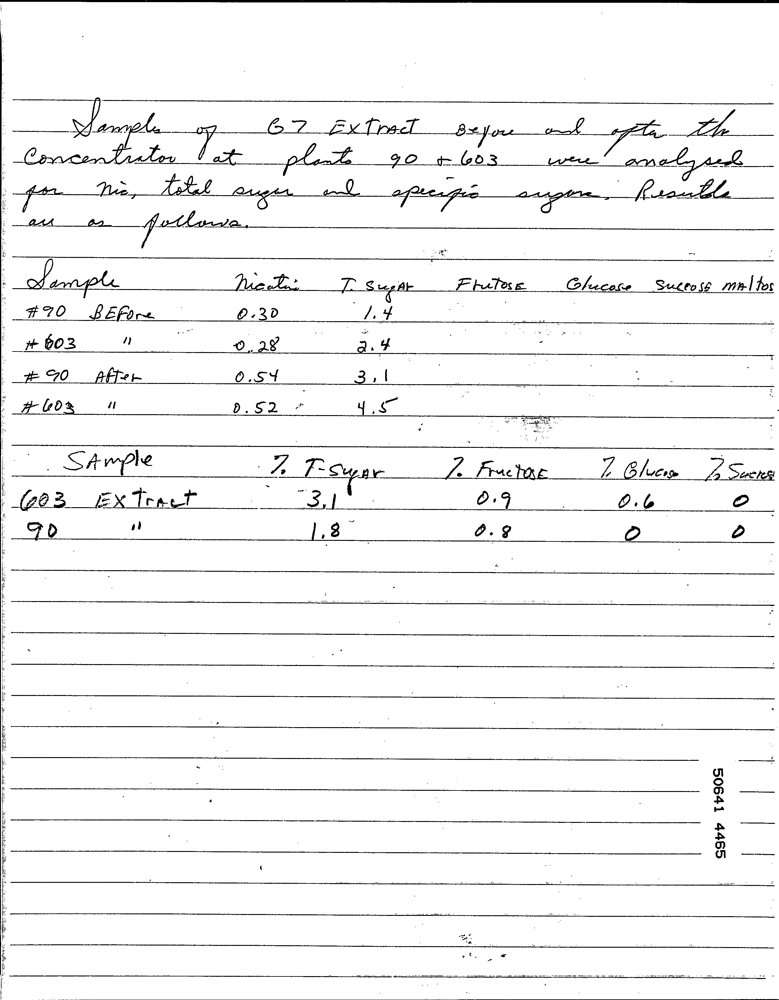 Samples of G7 EXTRACT Before and after the
Concentrator at plants 90 + 603 were analysed
for Nic, total sugar and specific sugars. Results
are as follows.
Sample Nicotine T. SugAr FrutosE Glucose SucrosE mAltos
#90 BEFore 0.30 1.4
#603 " 0.28 2.4
#90 After 0.54 3.1
#603 " 0.52 4.5
SAmple % T-SugAr % FrucTosE % Glucose % Sucrose
603 EXTrAct 3.1 0.9 0.6 0
90 " 1.8 0.8 0 0
50641 4465